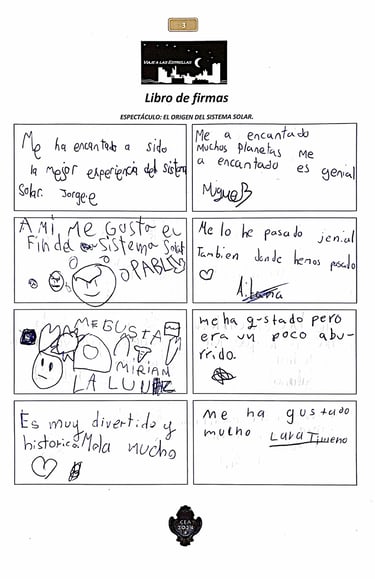 3
VIAJE A LAS ESTRELLAS
Libro de firmas
ESPECTÁCULO: EL ORIGEN DEL SISTEMA SOLAR.
Me ha encantado a sido
la mejor experiencia del sistema
Solar. Jorge
Me a encantado
Muchos planetas me
a encantado es genial
Miguel B
A MI ME GUSTA EL
FIN DEL SISTEMA Solar
PABLO
Me lo he pasado jenial
Tambien donde hemos pasado
Aitana
ME GUSTA
MIRIAM
LA LUUZ
me ha gustado pero
era un poco abu-
rrido.
Es muy divertido y
historico. Mola mucho
me ha gustado
mucho Lara Timeno
CEA
2024